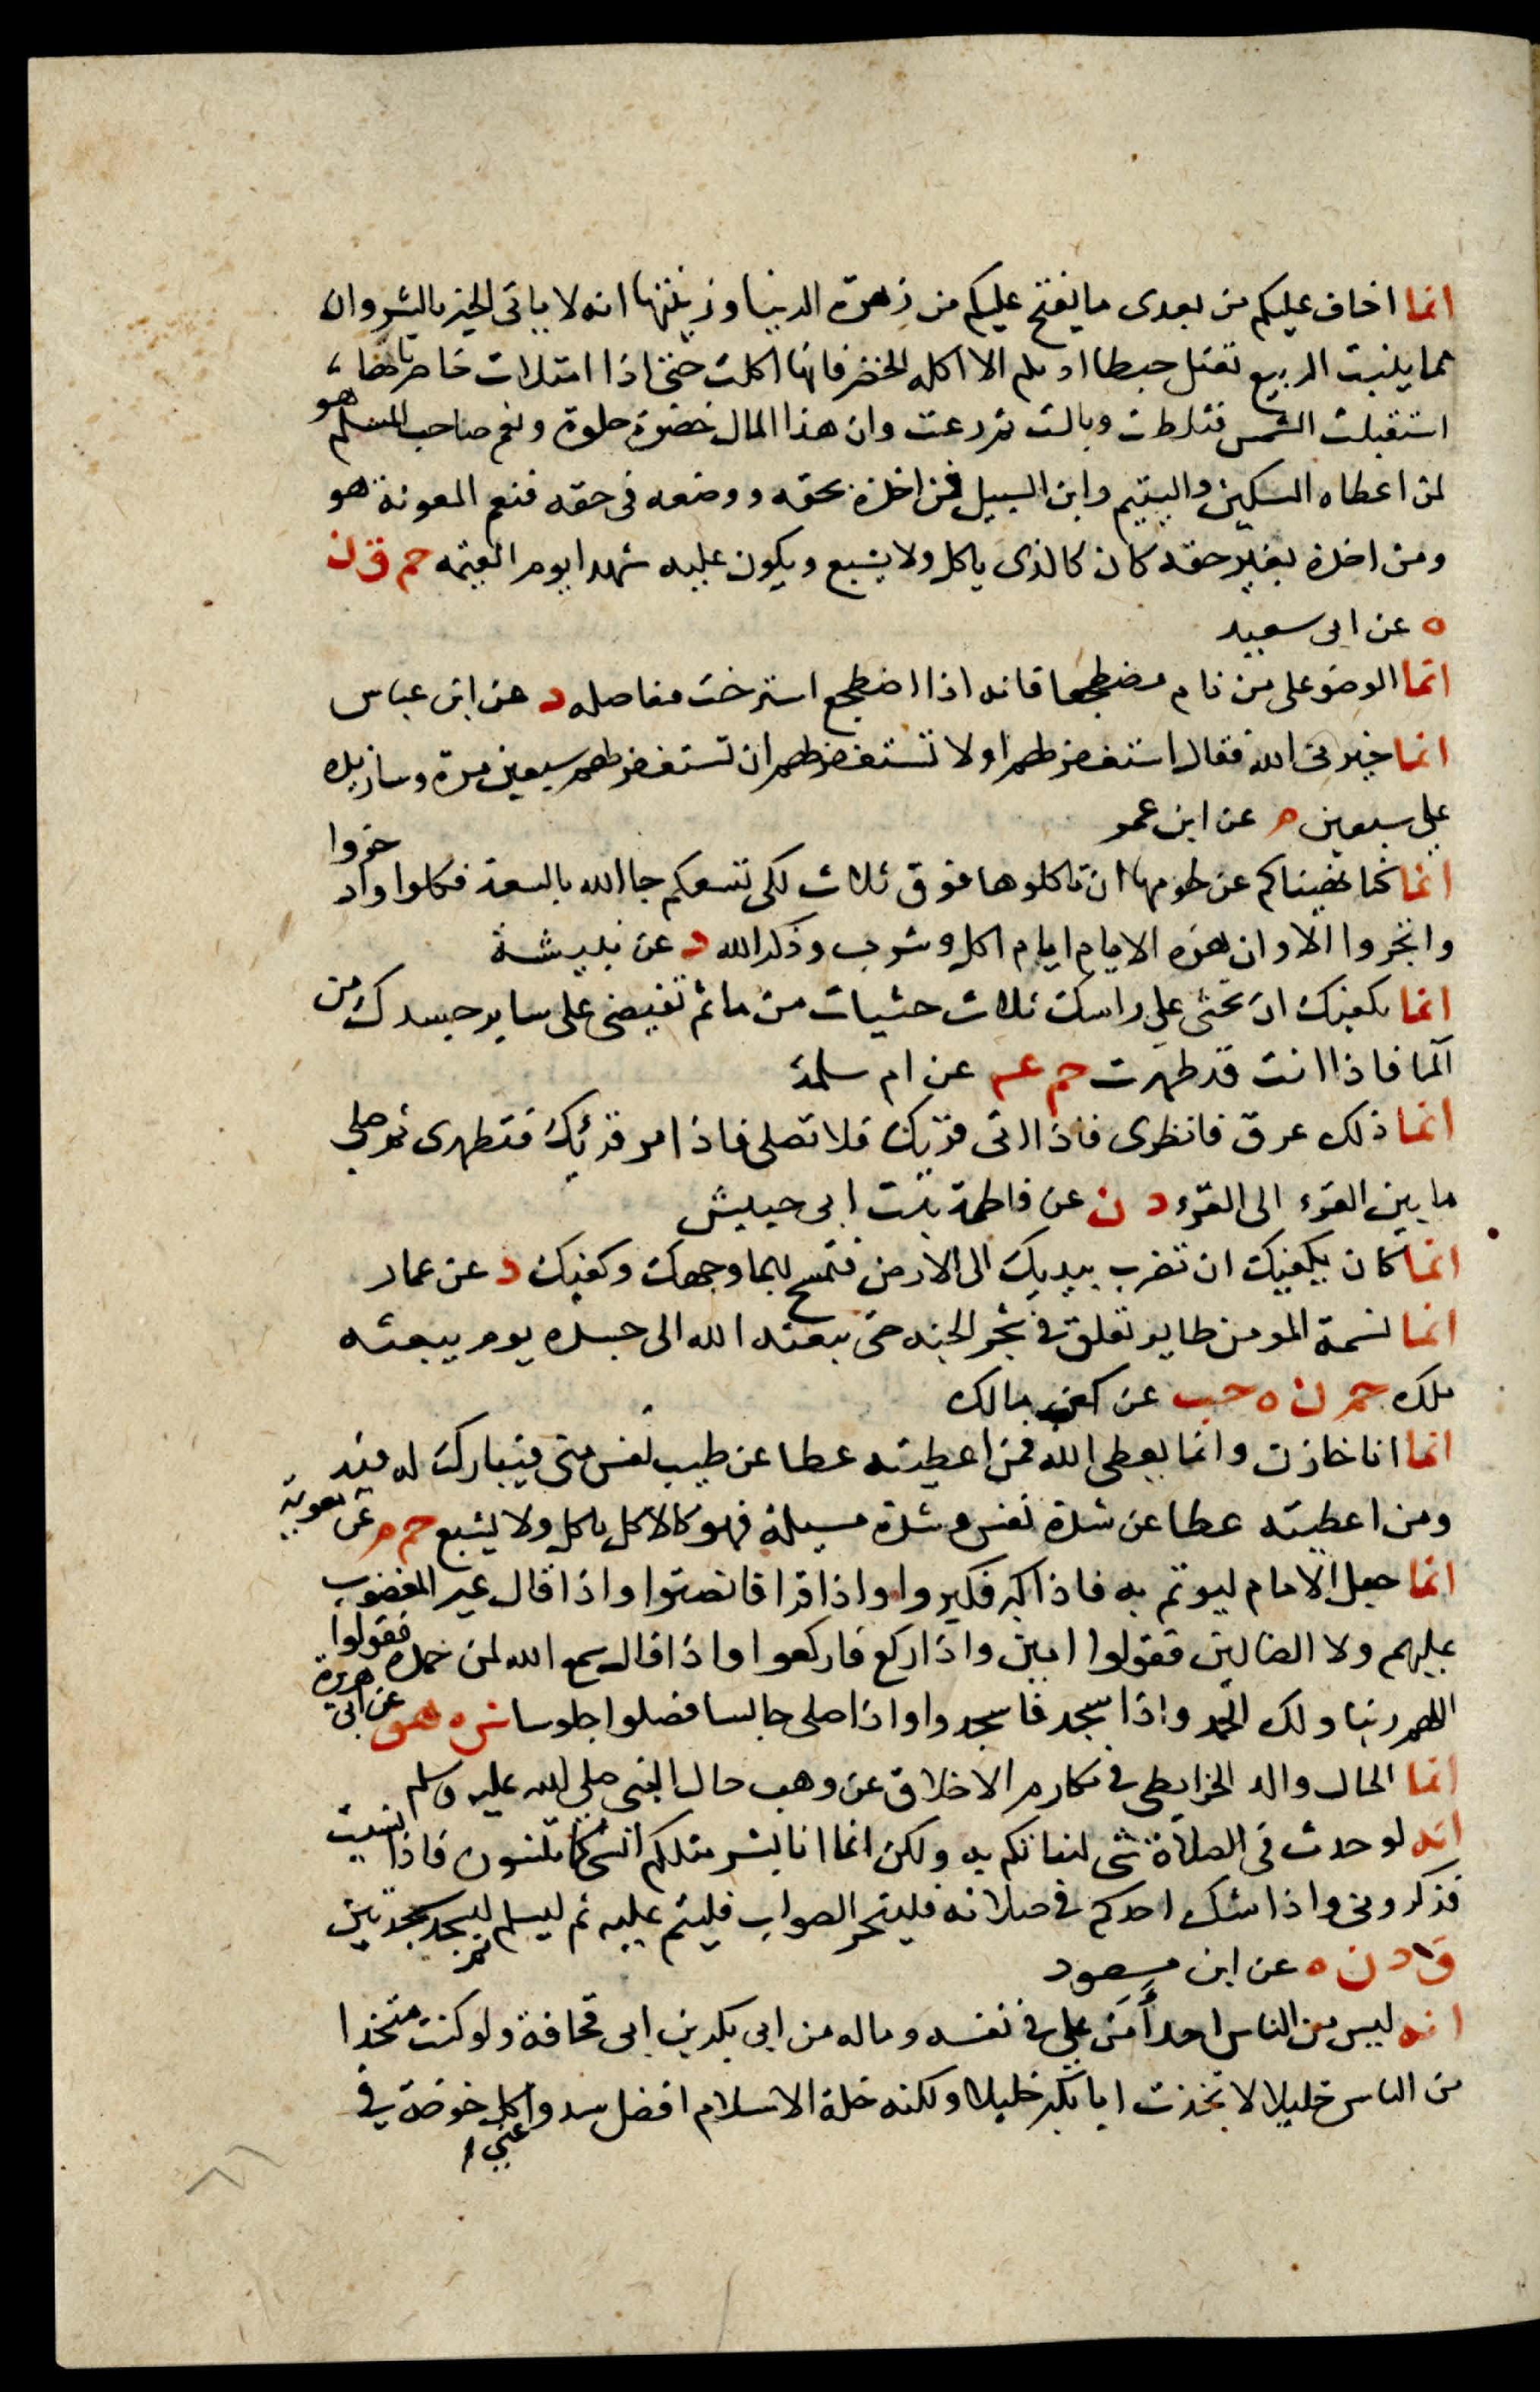 انما اخاف عليكم من بعدى ما يفتح عليكم من زهرة الدنيا وزينتها انه لا ياتى الخير بالشر وان
مما ينبت الربيع تقتل حبطا او يلم الا اكله الخضر فانها اكلت حتى اذا امتلات خاصرتاها
استقبلت الشمس فثلطت وبالت ثم رعت وان هذا المال خضرة حلوة ونعم صاحب المسلم هو
لمن اعطاه المسكين واليتيم وابن السبيل فمن اخذه بحقه ووضعه فى حقه فنعم المعونة هو
ومن اخذه بغير حقه كان كالذى ياكل ولا يشبع ويكون عليه شهدا يوم القيمه حم ق ن
ه عن ابى سعيد
انما الوضو على من نام مضطجعا فانه اذا اضطجع استرخت مفاصله د عن ابن عباس
انما خيرنى الله فقال استغفر لهم او لا تستغفر لهم ان تستغفر لهم سبعين مرة وسازيده
على سبعين م عن ابن عمر
انما كنا نهيناكم عن لحومها ان تاكلوها فوق ثلاث لكى تسعكم جا الله بالسعة فكلوا واد خروا
واتجروا الا وان هذه الايام ايام اكل وشرب وذكر الله د عن نبيشة
انما يكفيك ان تحثى على راسك ثلاث حثيات من ما ثم تفيضى على ساير جسدك من
الما فاذا انت قد طهرت حم عه عن ام سلمة
انما ذلك عرق فانظرى فاذا اتى قرئك فلا تصلى فاذا مر قرئك فتطهرى ثم صلى
ما بين القرء الى القرء د ن عن فاطمة بنت ابى حبيش
انما كان يكفيك ان تضرب بيديك الى الارض فتمسح بهما وجهك وكفيك د عن عمار
انما نسمة المومن طاير تعلق فى شجر الجنه حتى يبعثه الله الى جسده يوم يبعثه
ملك حم ن ه حب عن كعب مالك
انما انا خازن وانما يعطى الله فمن اعطيته عطا عن طيب نفس منى فيبارك له فيه
ومن اعطيته عطا عن شدة نفس وشدة مسيلة فهو كالاكل ياكل ولا يشبع حم م عن معوية
انما جعل الامام ليوتم به فاذا كبر فكبروا واذا قرا فانصتوا واذا قال غير المغضوب
عليهم ولا الضالين فقولوا امين واذا ركع فاركعوا واذا قال سمع الله لمن حمده فقولوا
اللهم ربنا ولك الحمد واذا سجد فاسجدوا واذا صلى جالسا فصلوا جلوسا ش ه هق عن ابى هريرة
انما الخال والد الخرايطى فى مكارم الاخلاق عن وهب خال النبى صلى الله عليه وسلم
انه لو حدث فى الصلاة شى لنباتكم به ولكن انما انا بشر مثلكم انسى كما تنسون فاذا نسيت
فذكرونى واذا شك احدكم فى صلاته فليتحر الصواب فليتم عليه ثم ليسلم ثم ليسجد سجدتين
ق د ن ه عن ابن مسعود
انه ليس من الناس احد أَمَنّ على فى نفسه وماله من ابى بكر بن ابى قحافة ولو كنت متخذا
من الناس خليلا لاتخذت ابا بكر خليلا ولكنه خلة الاسلام افضل سدوا عنى كل خوخة فى